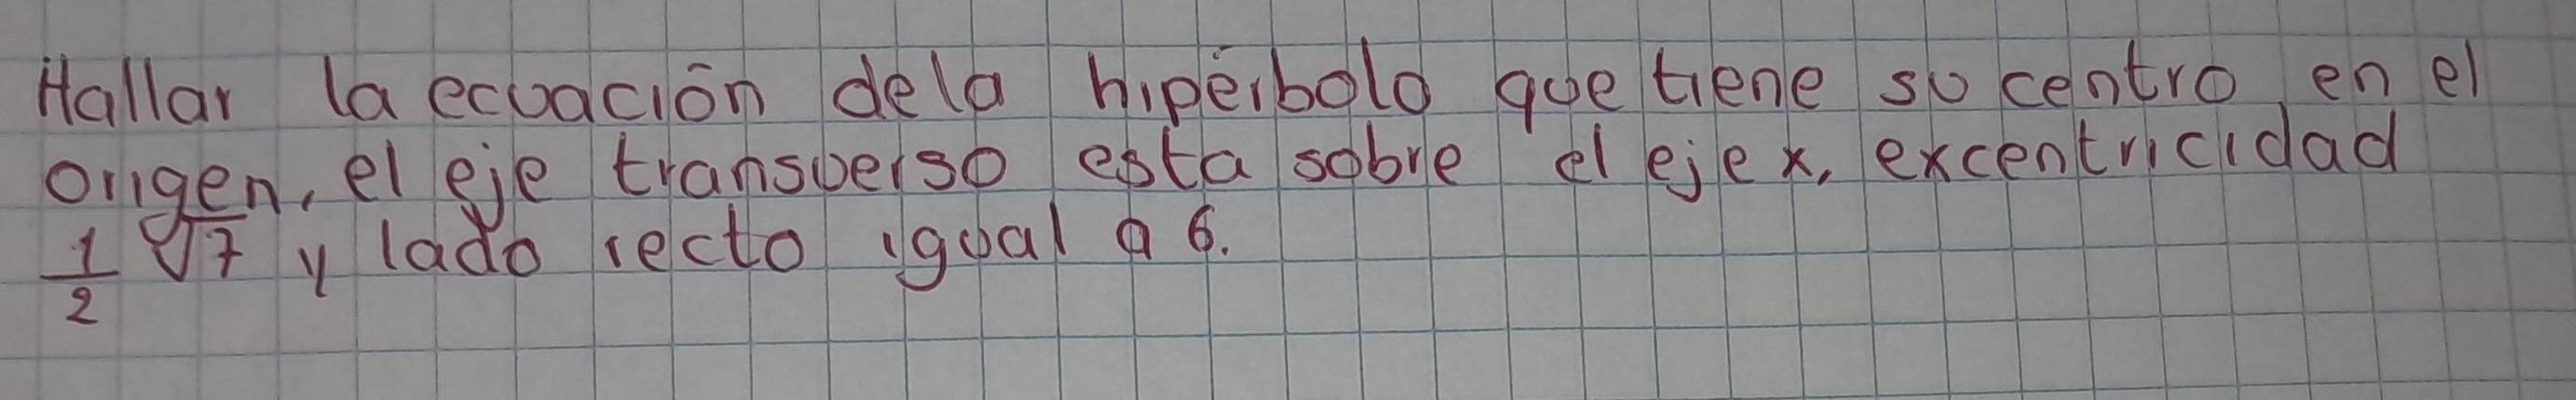 Hallar la ecuación dela hipérbola que tiene su centro en el
origen, el eje transverso esta sobre el eje x, excentricidad
1/2 √7 y lado recto igual a 6.